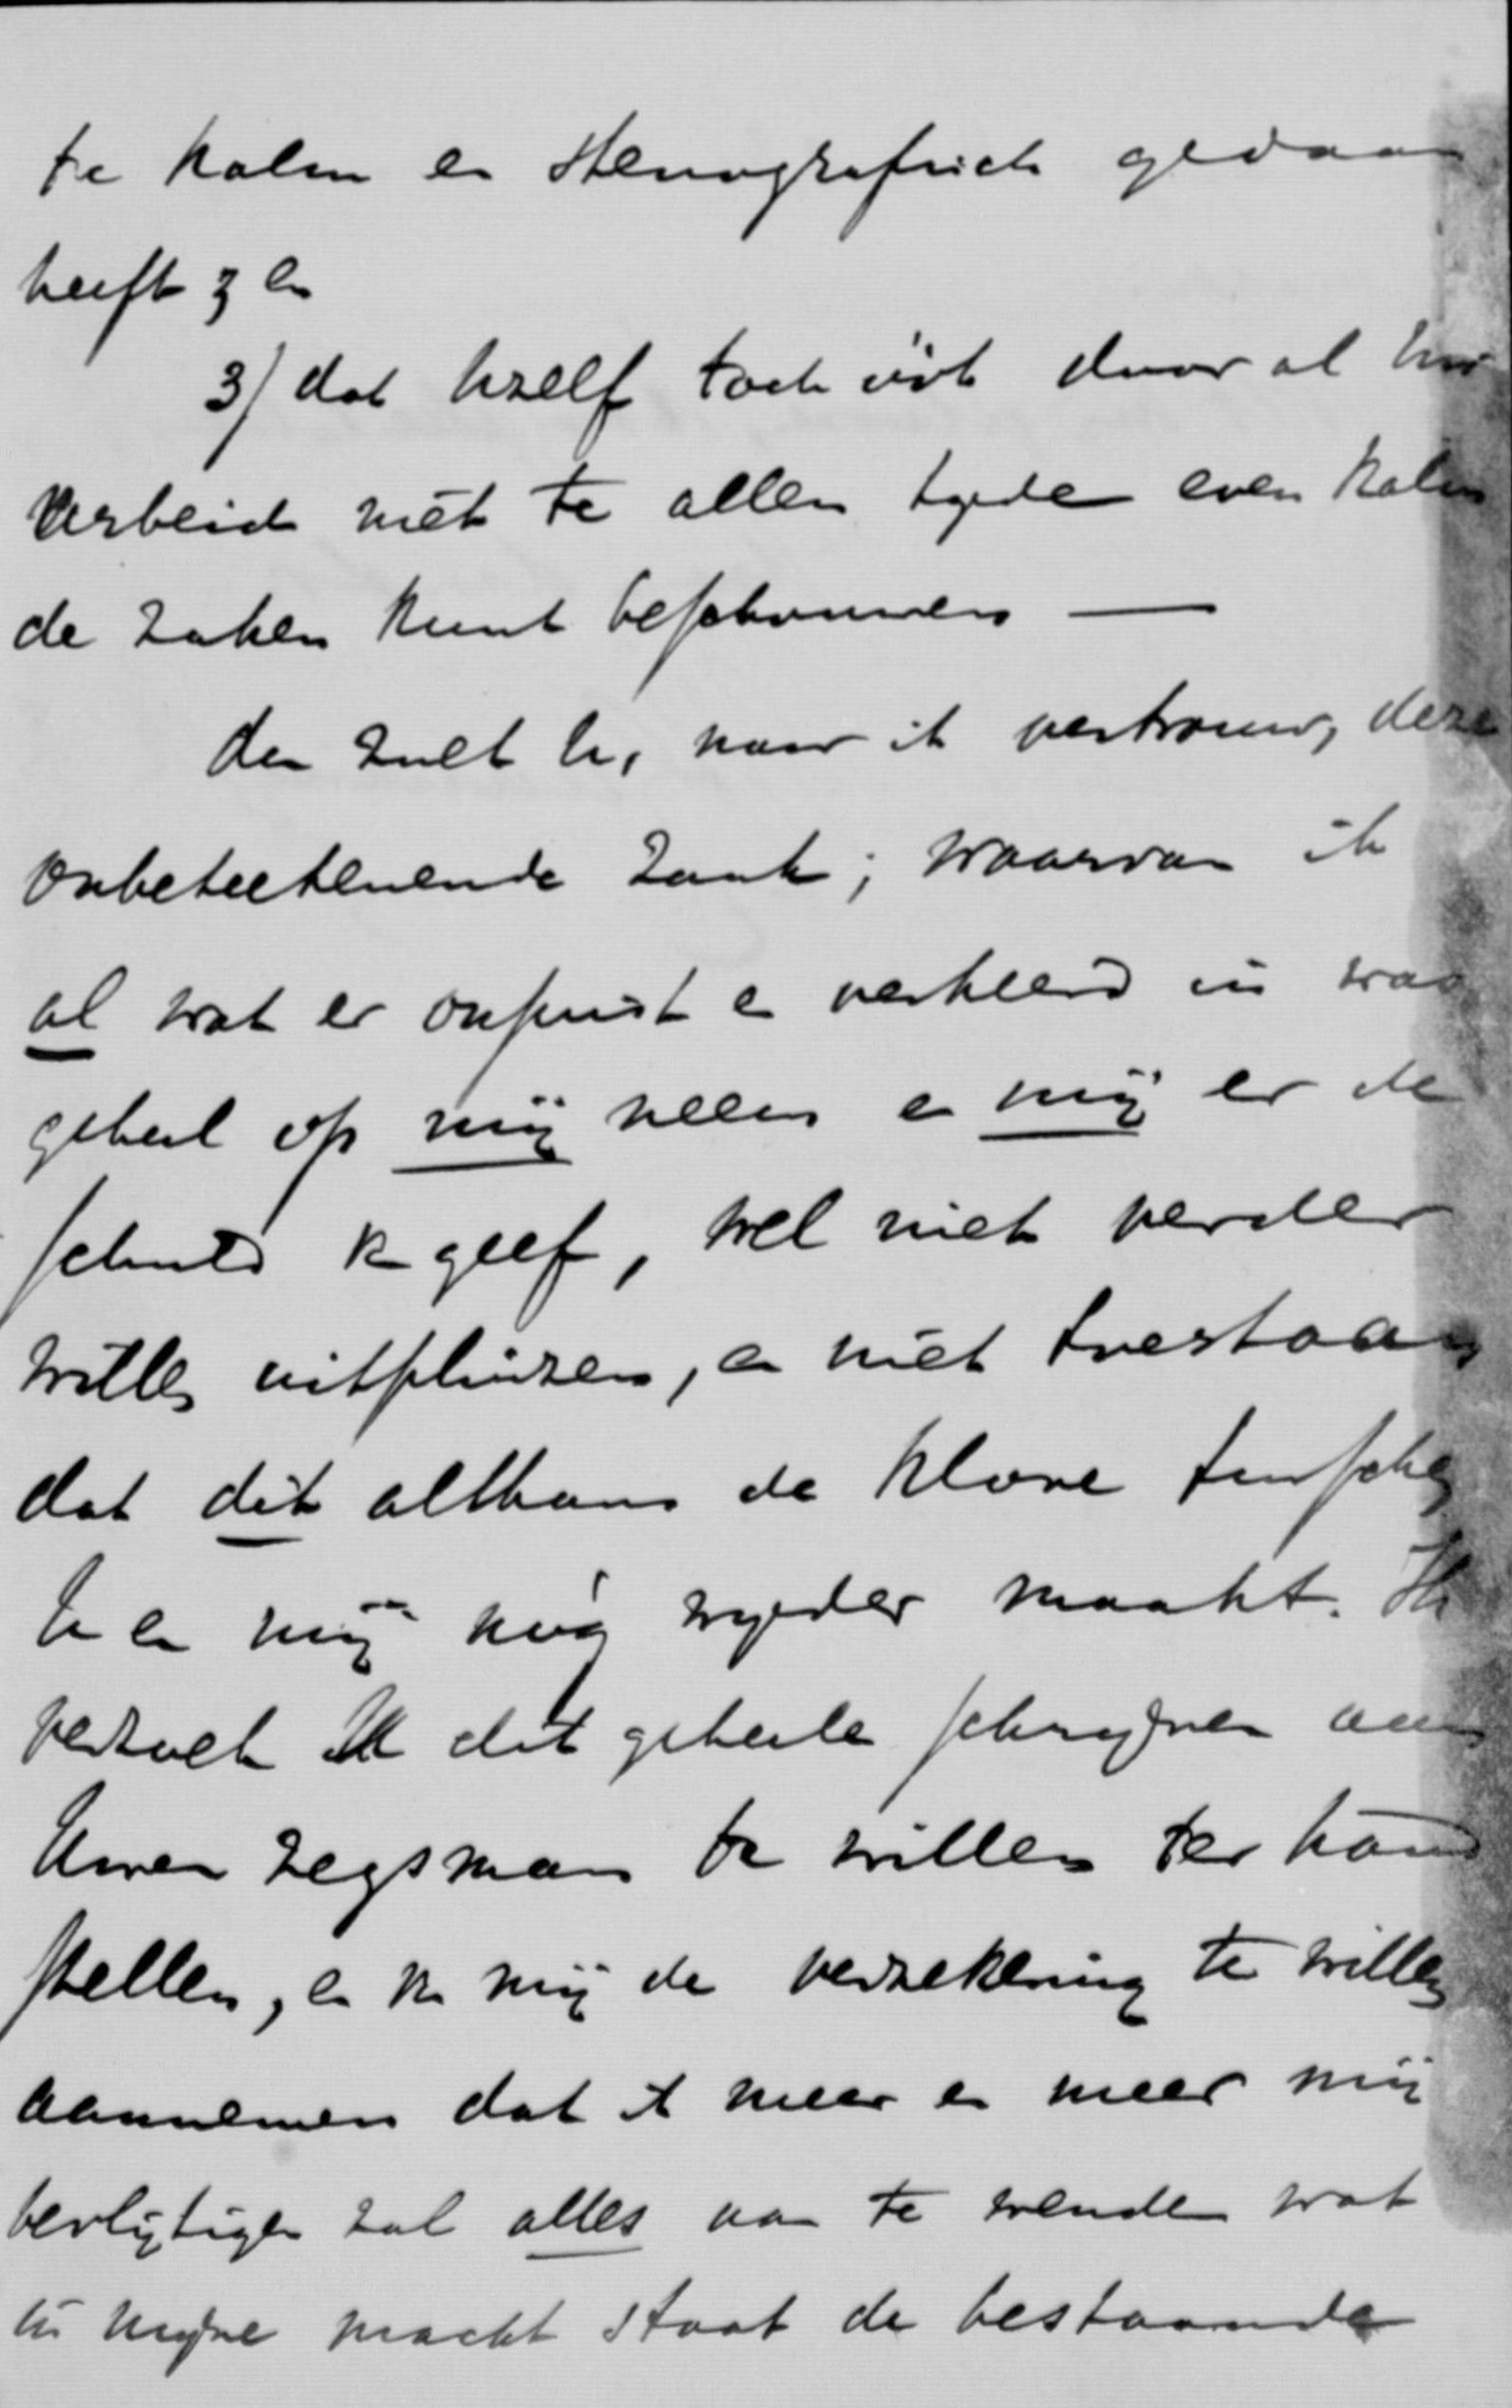 te kalm en stenografisch gedaan
heeft; en
3) dat Uzelf toch óók door al Uw
arbeid niet te allen tyde even kalm
de zaken kunt beschouwen —
dan zult U, naar ik vertrouw, deze
onbeteekenende zaak, waarvan ik
al wat er onjuist en verkeerd in was
geheel op mij neem en mij er de
schuld v. geef, wel niet verder
willen uitpluizen, en niet toestaan
dat dit althans de klove tusschen
U en mij nóg wyder maakt. Ik
verzoek U dit geheele schryven aan
Uwen zegsman te willen ter hand
stellen, en v. mij de verzekering te willen
aannemen dat ik meer en meer mij
bevlijtigen zal alles aan te wenden wat
in myne macht staat de bestaande